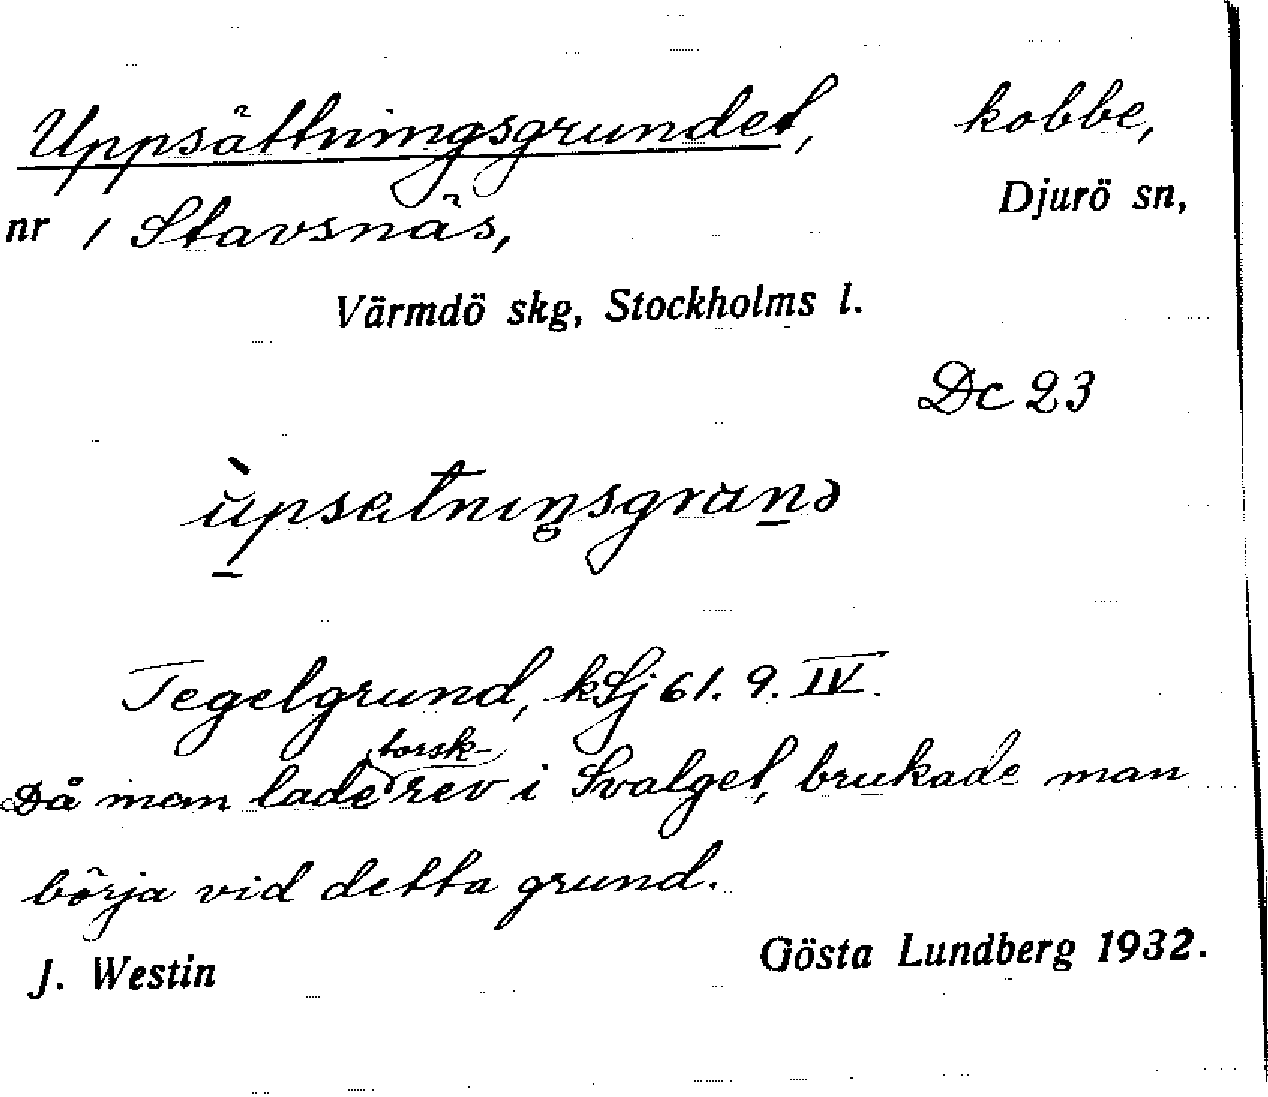 Uppsättningsgrundet, kobbe,
nr 1 Stavsnäs, Djurö sn,
Värmdö skg, Stockholms l.
Dc 23
Tegelgrund, kSj 61. 9. IV.
Då man lade torsk-rev i Svalget, brukade man
börja vid detta grund.
J. Westin Gösta Lundberg 1932.